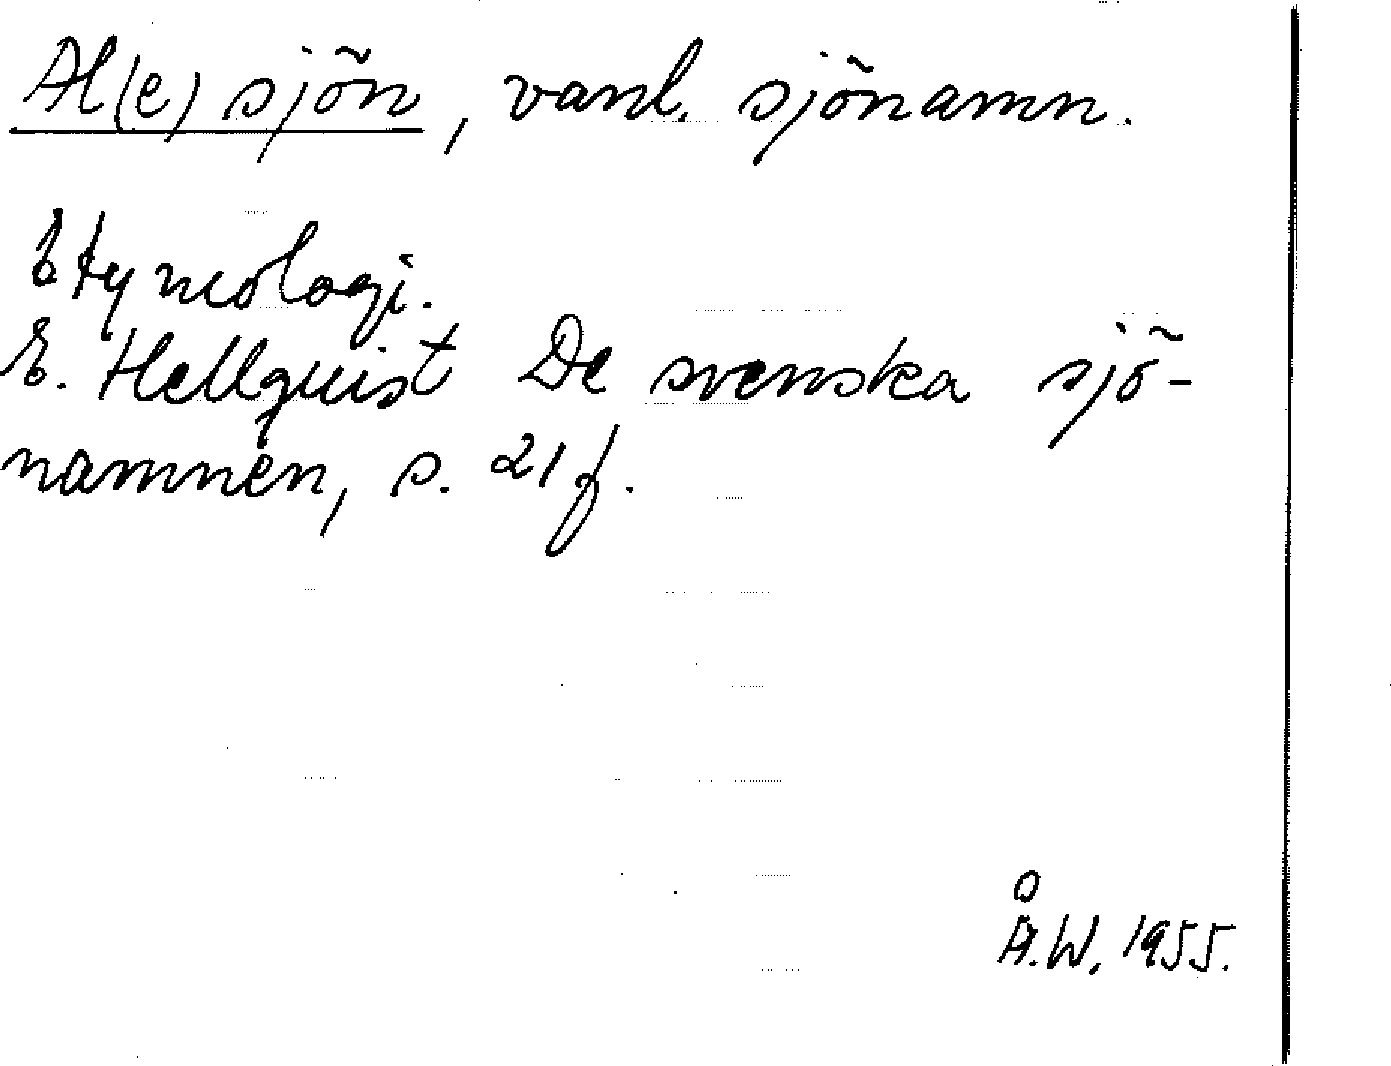 Al(e)sjön, vanl. sjönamn.
Etymologi.
E. Hellquist De svenska sjö-
namnen, s. 21 f.
Å.W. 1955.